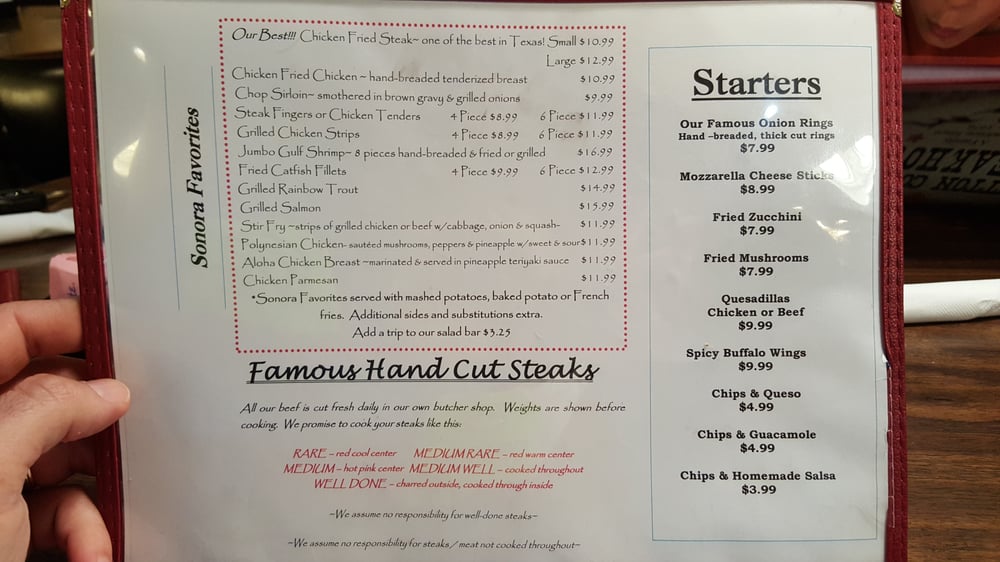 Sonora Favorites
Our Best!!! Chicken Fried Steak~ one of the best in Texas! Small $10.99
Large $12.99
Chicken Fried Chicken ~ hand-breaded tenderized breast $10.99
Chop Sirloin~ smothered in brown gravy & grilled onions $9.99
Steak Fingers or Chicken Tenders 4 Piece $8.99 6 Piece $11.99
Grilled Chicken Strips 4 Piece $8.99 6 Piece $11.99
Jumbo Gulf Shrimp~ 8 pieces hand-breaded & fried or grilled $16.99
Fried Catfish Fillets 4 Piece $9.99 6 Piece $12.99
Grilled Rainbow Trout $14.99
Grilled Salmon $15.99
Stir Fry ~strips of grilled chicken or beef w/cabbage, onion & squash- $11.99
Polynesian Chicken- sautéed mushrooms, peppers & pineapple w/sweet & sour$11.99
Aloha Chicken Breast ~marinated & served in pineapple teriyaki sauce $11.99
Chicken Parmesan $11.99
*Sonora Favorites served with mashed potatoes, baked potato or French
fries. Additional sides and substitutions extra.
Add a trip to our salad bar $3.25
Famous Hand Cut Steaks
All our beef is cut fresh daily in our own butcher shop. Weights are shown before
cooking. We promise to cook your steaks like this:
RARE – red cool center MEDIUM RARE – red warm center
MEDIUM – hot pink center MEDIUM WELL – cooked throughout
WELL DONE – charred outside, cooked through inside
~We assume no responsibility for well-done steaks~
~We assume no responsibility for steaks/ meat not cooked throughout~
Starters
Our Famous Onion Rings
Hand –breaded, thick cut rings
$7.99
Mozzarella Cheese Sticks
$8.99
Fried Zucchini
$7.99
Fried Mushrooms
$7.99
Quesadillas
Chicken or Beef
$9.99
Spicy Buffalo Wings
$9.99
Chips & Queso
$4.99
Chips & Guacamole
$4.99
Chips & Homemade Salsa
$3.99